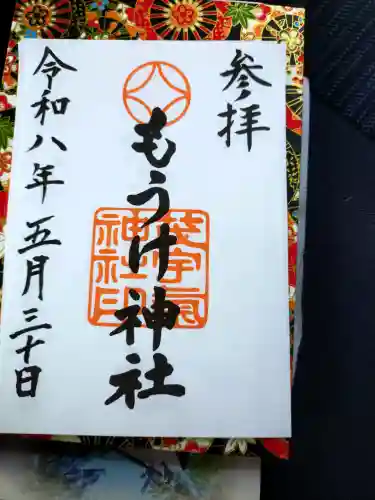 参拝
もうけ神社
令和八年五月三十日